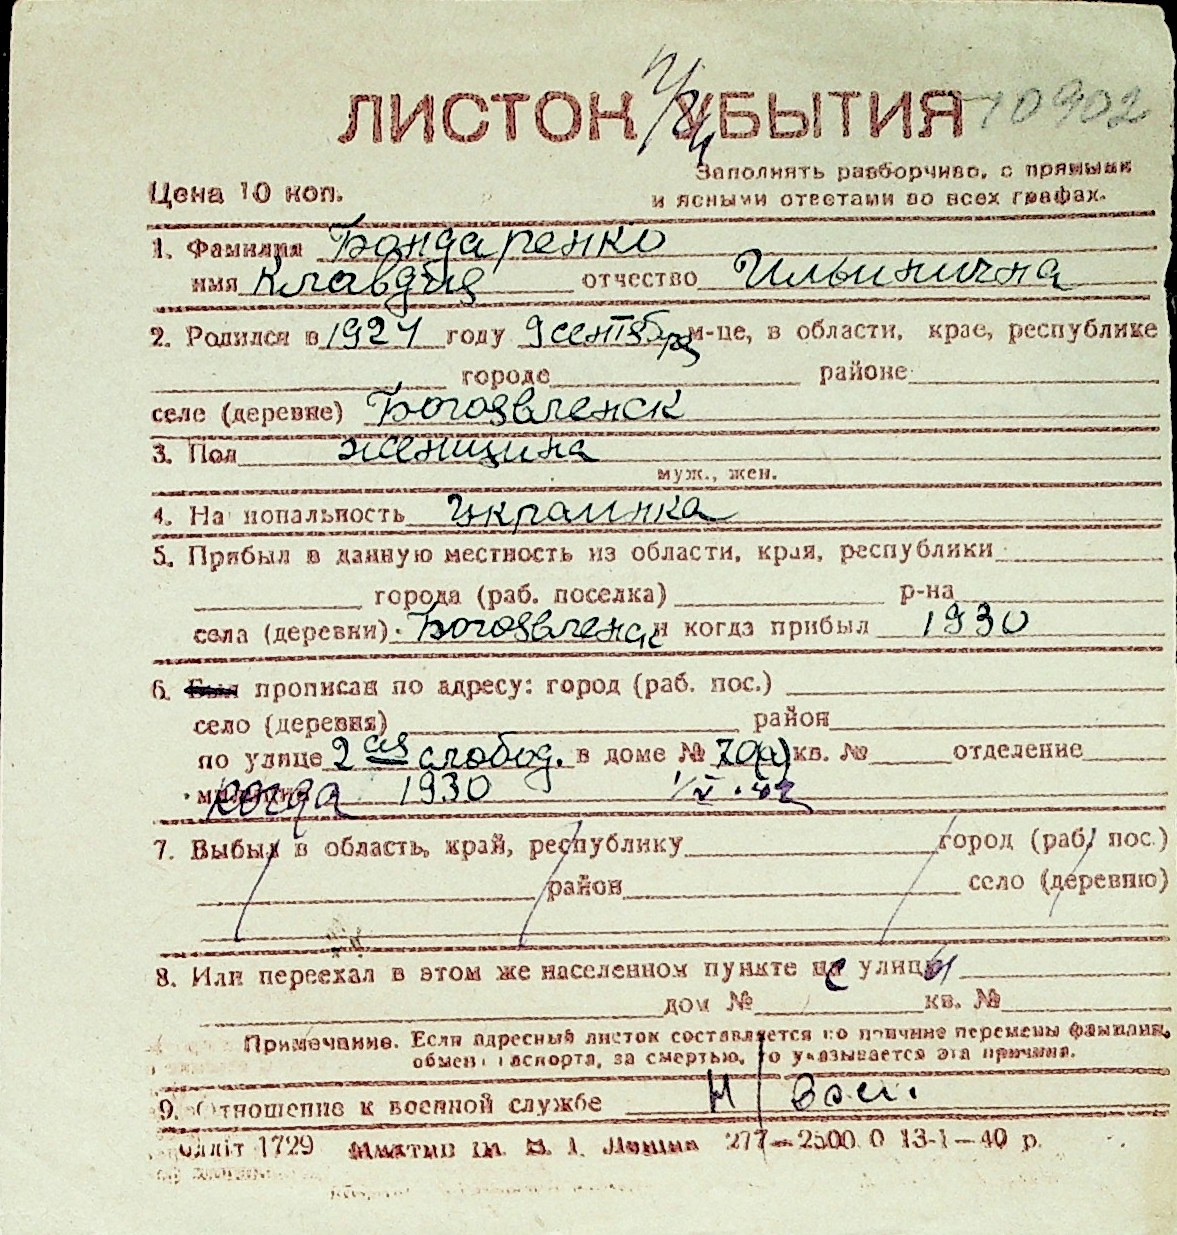 ЛИСТОК УБЫТИЯ 10902
Цена 10 коп.
Заполнять разборчиво, с прямыми
и ясными ответами во всех графах.
1. Фамилия Бондаренко
имя Клавдия отчество Ильинична
2. Родился в 1924 году 9 сентября м-це, в области, крае, республике
городе районе
селе (деревне) Богоявленск
3. Пол женщина
муж., жен.
4. На иональность украинка
5. Прибыл в данную местность из области, края, республики
города (раб. поселка) р-на
села (деревни) Богоявленск и когда прибыл 1930
6. Был прописан по адресу: город (раб. пос.)
село (деревня) район
по улице 2 ая слобод. в доме № 70(а) кв. № отделение
когда 1930 1/V.42
7. Выбыл в область, край, республику город (раб. пос.)
район село (деревню)
8. Или переехал в этом же населенном пункте улицы
дом № кв. №
Примечание. Если адресный листок составляется по причине перемены фамилии,
обмен паспорта, за смертью, то указывается эта причина.
9. Отношение к военной службе н/воен.
олліт 1729 277—2500 0 13-1—40 р.